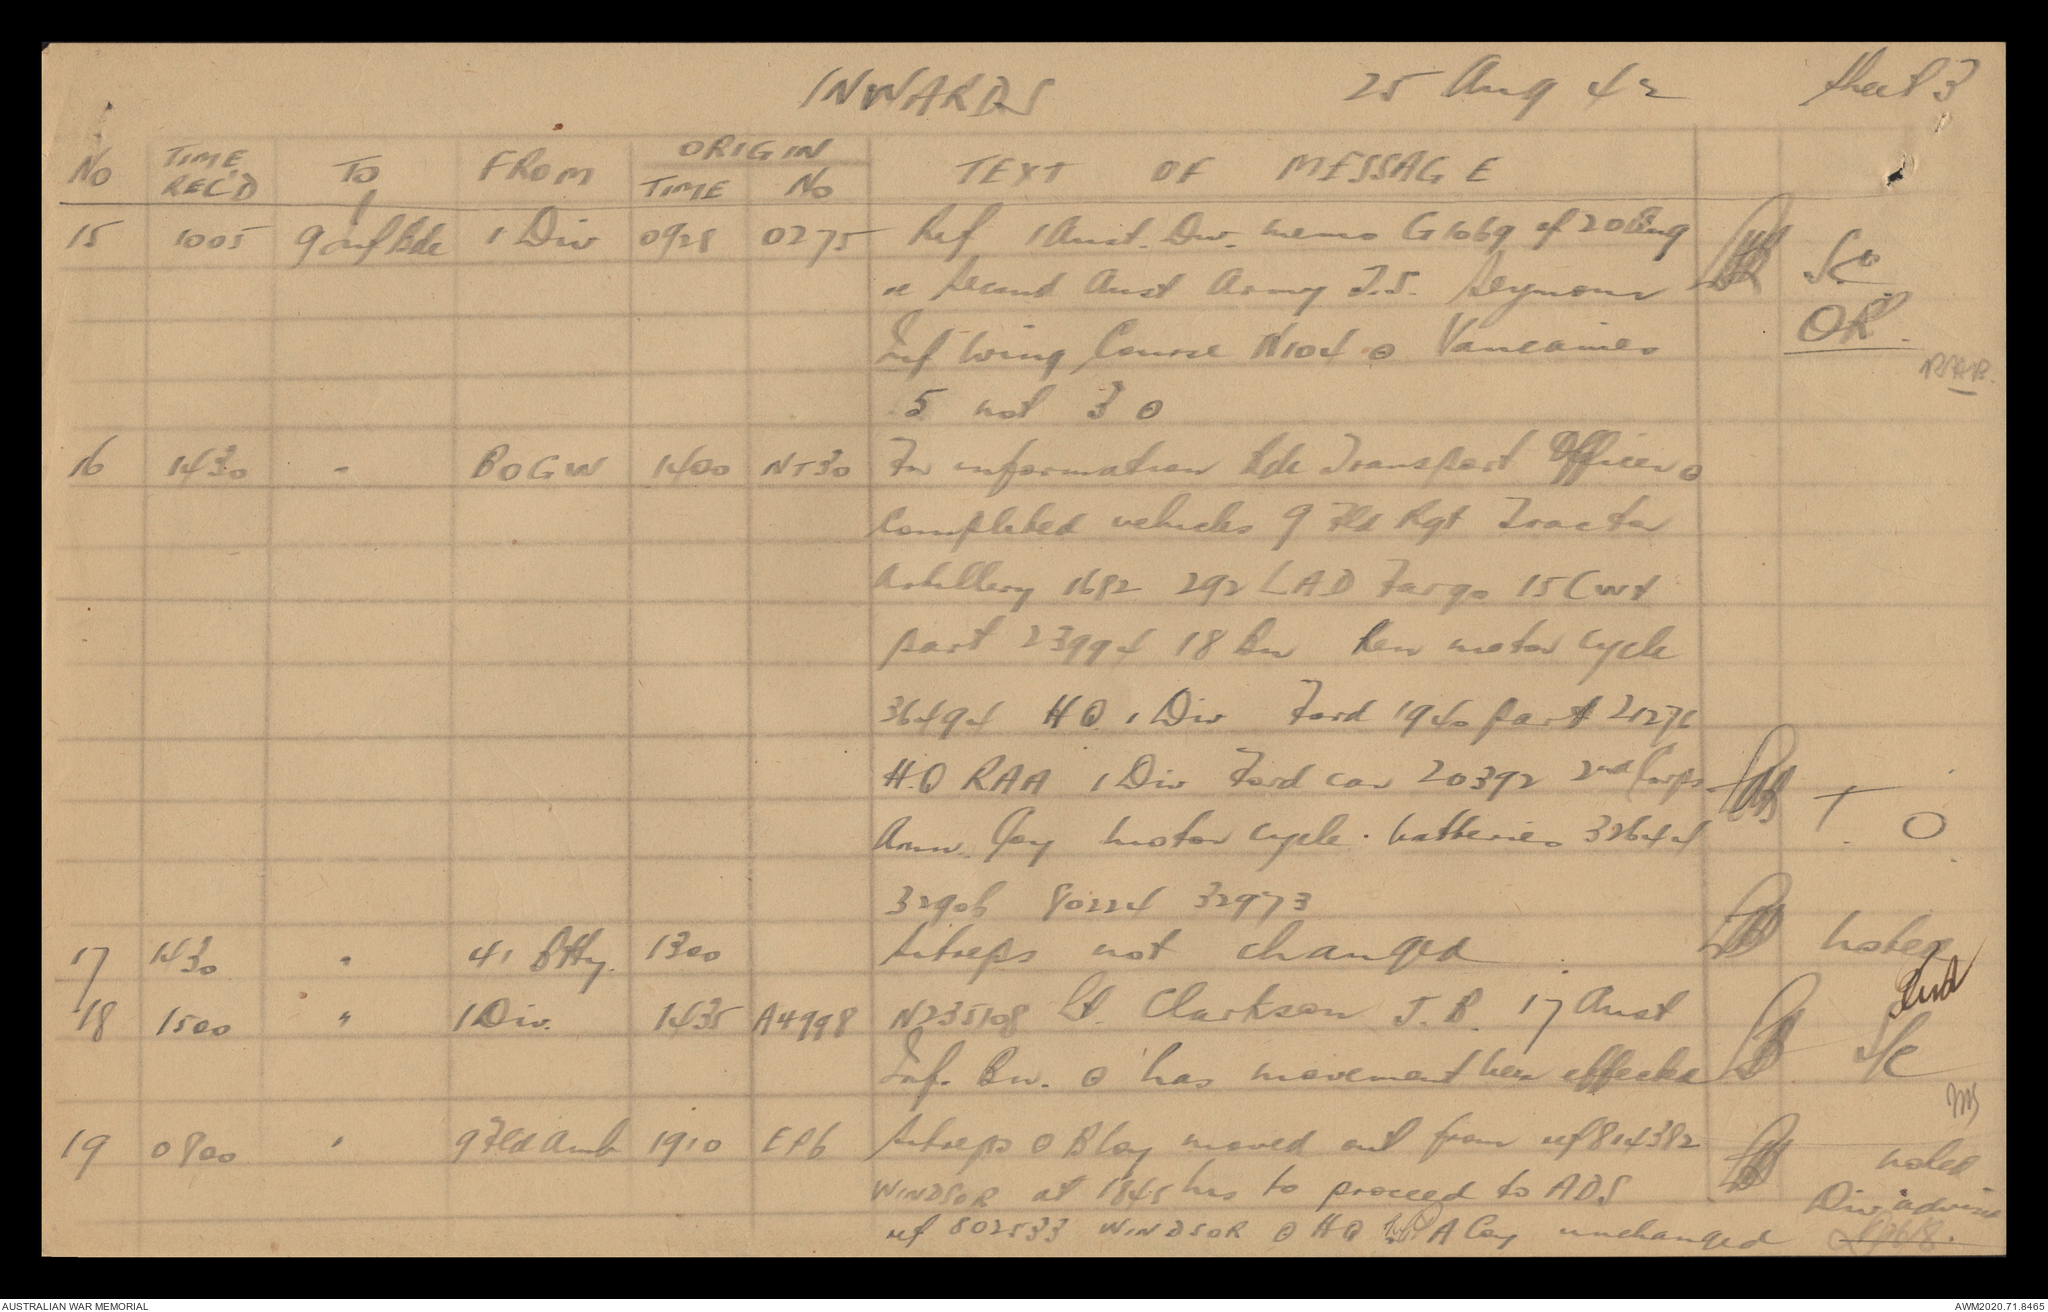 INWARDS 25 Aug 42 Sheet 3
No TIME REC'D TO FROM ORIGIN TIME No TEXT OF MESSAGE
15 1005 9 Inf Bde 1 Div 0928 0275 Ref 1 Aust. Div. memo G1069 of 20 Aug
Second Aust Army T.S. Seymour S/C
Inf Wing Course N104 ⊙ Vancaines OR.
5 not 3 ⊙
16 1430 " BOGW 1400 NT30 For information Bde Transport Officer ⊙
Completed vehicles 9 Fld Rgt Tractor
Artillery 1682 292 LAD Fargo 15 Cwt
part 23994 18 Bn motor cycle
36494 HQ 1 Div Ford 1940 part 21276
H.Q RAA 1 Div Ford car 20392 2nd Corps
Amn. Coy motor cycle. batteries 32644 T O
32906 80224 32973
17 1430 " 41 Btty. 1300 Sitreps not changed noted
18 1500 " 1 Div. 1435 A4998 N235108 Lt. Clarkson J.B. 17 Aust
Inf. Bn. ⊙ has movement been effected S/C
19 0800 " 9 Fld Amb 1910 EP6 Sitreps ⊙ B Coy moved out from ref 814382 noted
WINDSOR at 1845 hrs to proceed to ADS Div advised
ref 802533 WINDSOR ⊙ HQ A Coy unchanged
AUSTRALIAN WAR MEMORIAL AWM2020.71.8465